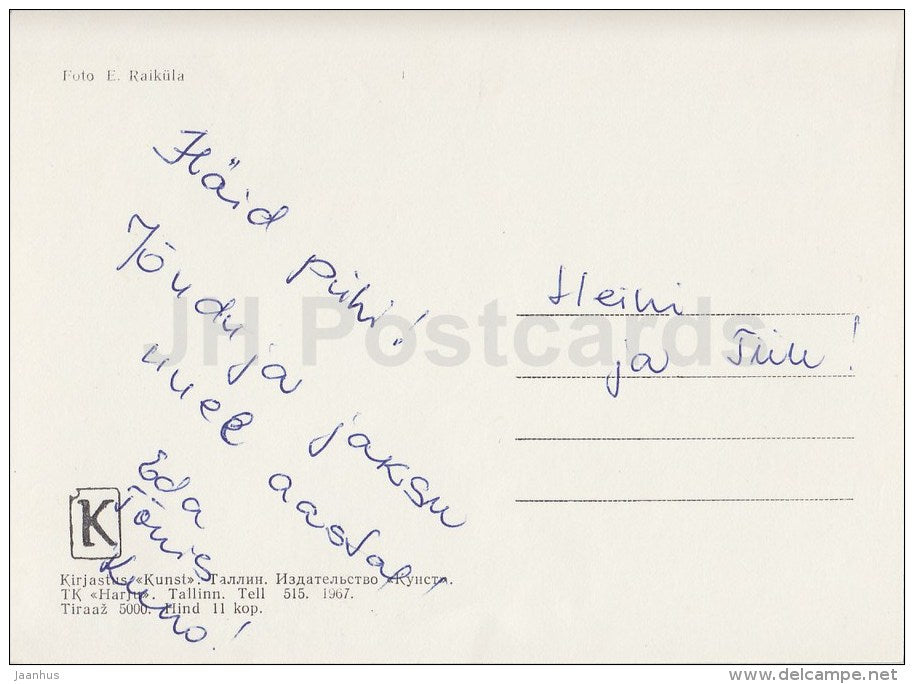 Foto E. Raiküla
Häid pühi!
Jõudu ja jaksu
uuel aastal!
Eda
Tõnis
Kuno!
Heiki
ja Tiiu!
JH Postcards
K
Kirjastus «Kunst». Таллин. Издательство «Кунст».
TK «Harju». Tallinn. Tell 515. 1967.
Tiraaž 5000. Hind 11 kop.
jaanhus
www.delcampe.net